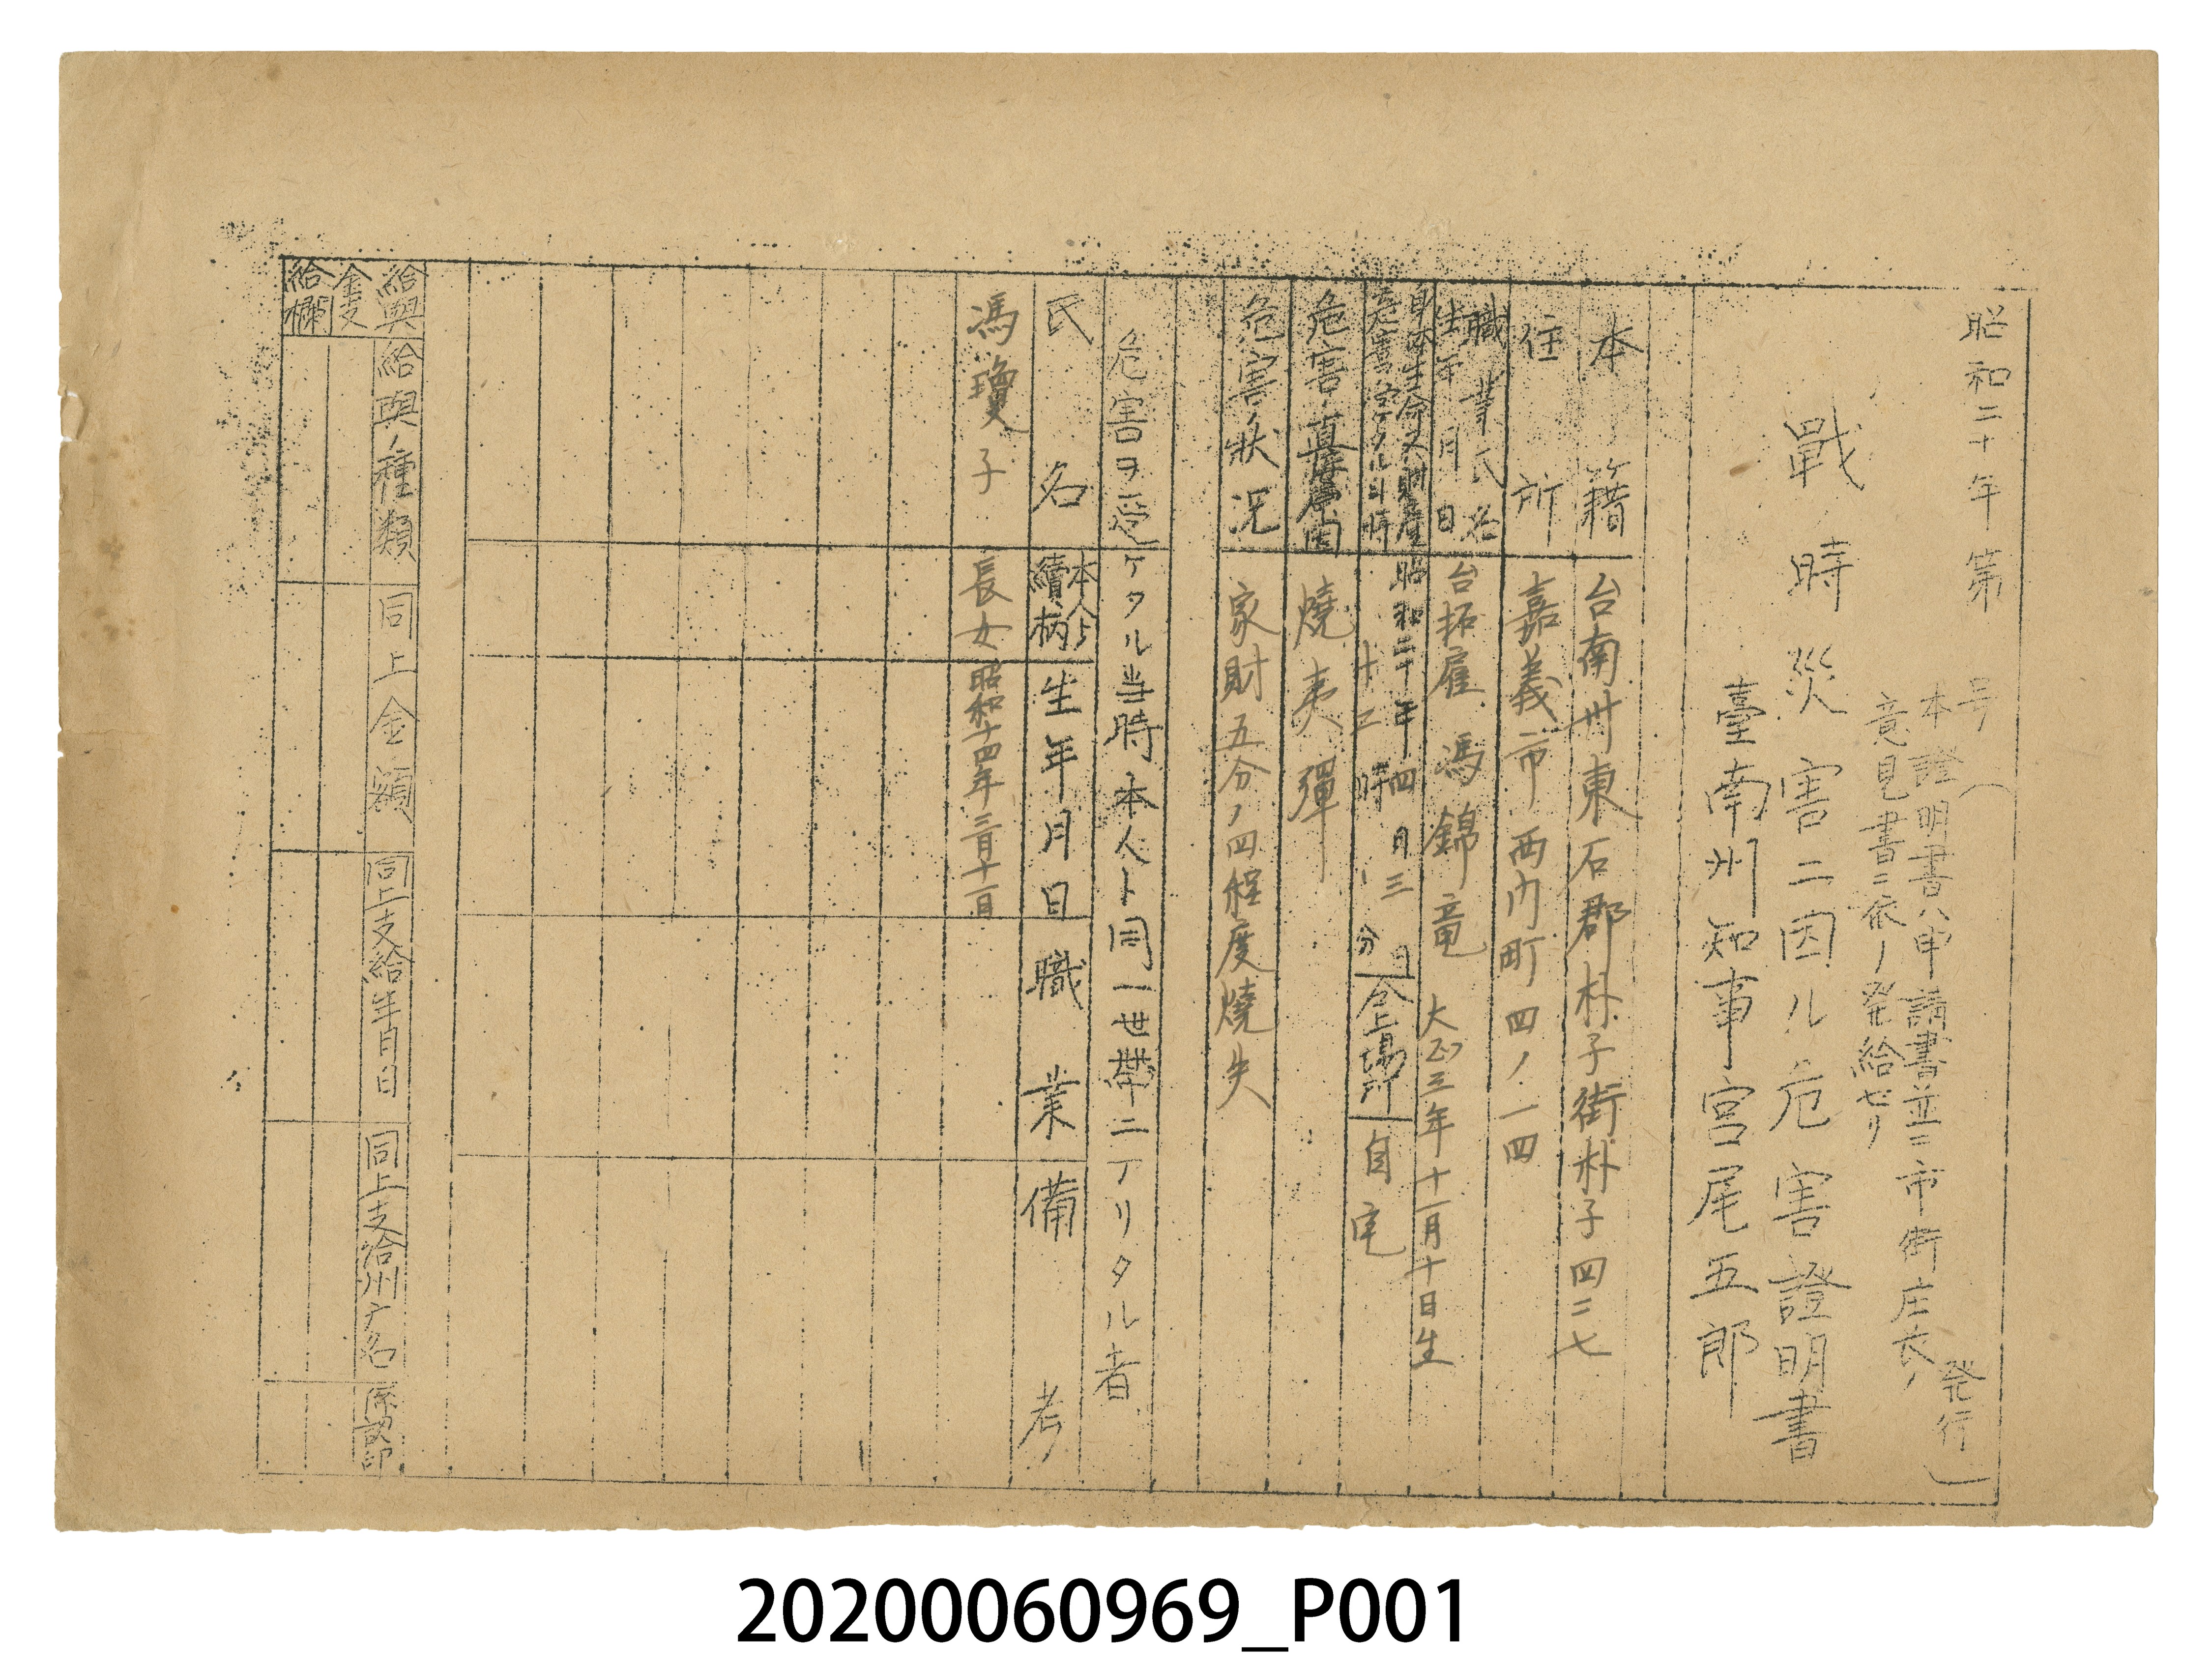 昭和二十年第　号
(本證明書ハ申請書並ニ市街庄長ノ
意見書ニ依リ発給セリ
発行)
戰時災害ニ因ル危害證明書
臺南州知事宮尾五郎
本籍　台南州東石郡朴子街朴子四二七
住所　嘉義市西門町四ノ一四
職業氏名
生年月日　台拓雇　馮錦竜　大正三年十一月十日生
身体生命又財産
危害ヲ受ケタル日時　昭和二十年四月三日
十二時　分　仝上場所　自宅
危害ノ直接原因　燒夷彈
危害ノ狀況　家財五分ノ四程度燒失
危害ヲ受ケタル当時本人ト同一世帶ニアリタル者
氏名　本人トノ續柄　生年月日　職業　備考
馮瓊子　長女　昭和十四年三月十一日
給與金支給欄
給與ノ種類　同上金額　同上支給年月日　同上支給州庁名　印